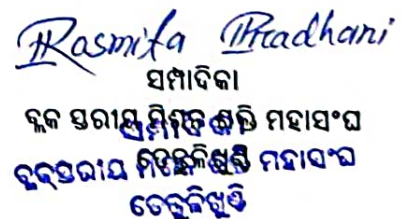 Rasmita Pradhani
ସମ୍ପାଦିକା
ବ୍ଲକ ସ୍ତରୀୟ ମିଶନ ଶକ୍ତି ମହାସଂଘ
ତେନ୍ତୁଳିଖୁଣ୍ଟି
ବ୍ଲକ୍‌ସ୍ତରୀୟ ମହାସଂଘ
ତେନ୍ତୁଳିଖୁଣ୍ଟି